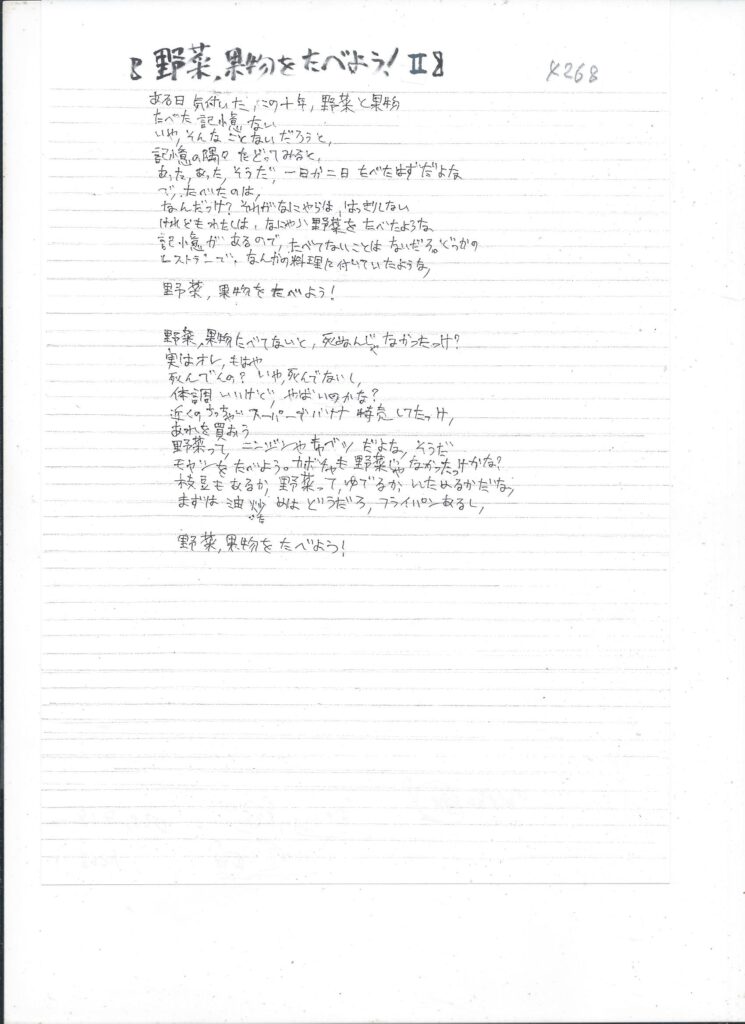 野菜,果物をたべよう!Ⅱ
X268
ある日 気付いた,この十年,野菜と果物
たべた 記憶 ない
いや,そんなことないだろうと,
記憶の隅々 たどってみると,
あった,あった,そうだ,一日か二日 たべたはずだよな
で,たべたのは,
なんだっけ?それがなにやらは,はっきりしない
けれどもわたしは,なにやら野菜をたべたような
記憶があるので,たべてないことは ないだろ。どっかの
レストランで,なんかの料理に付いていたような,
野菜,果物をたべよう!
野菜,果物たべてないと,死ぬんじゃなかったっけ?
実はオレ,もはや
死んでんの?いや,死んでないし,
体調 いいけど,やばいのかな?
近くのちっちゃいスーパーでバナナ 特売してたっけ,
あれを買おう
野菜って,ニンジンやキャベツ だよな,そうだ
モヤシをたべよう。カボチャも野菜じゃなかったっけかな?
枝豆もあるか,野菜って,ゆでるか,いためるかだな,
まずは 油炒めは どうだろ,フライパンあるし,
野菜,果物をたべよう!